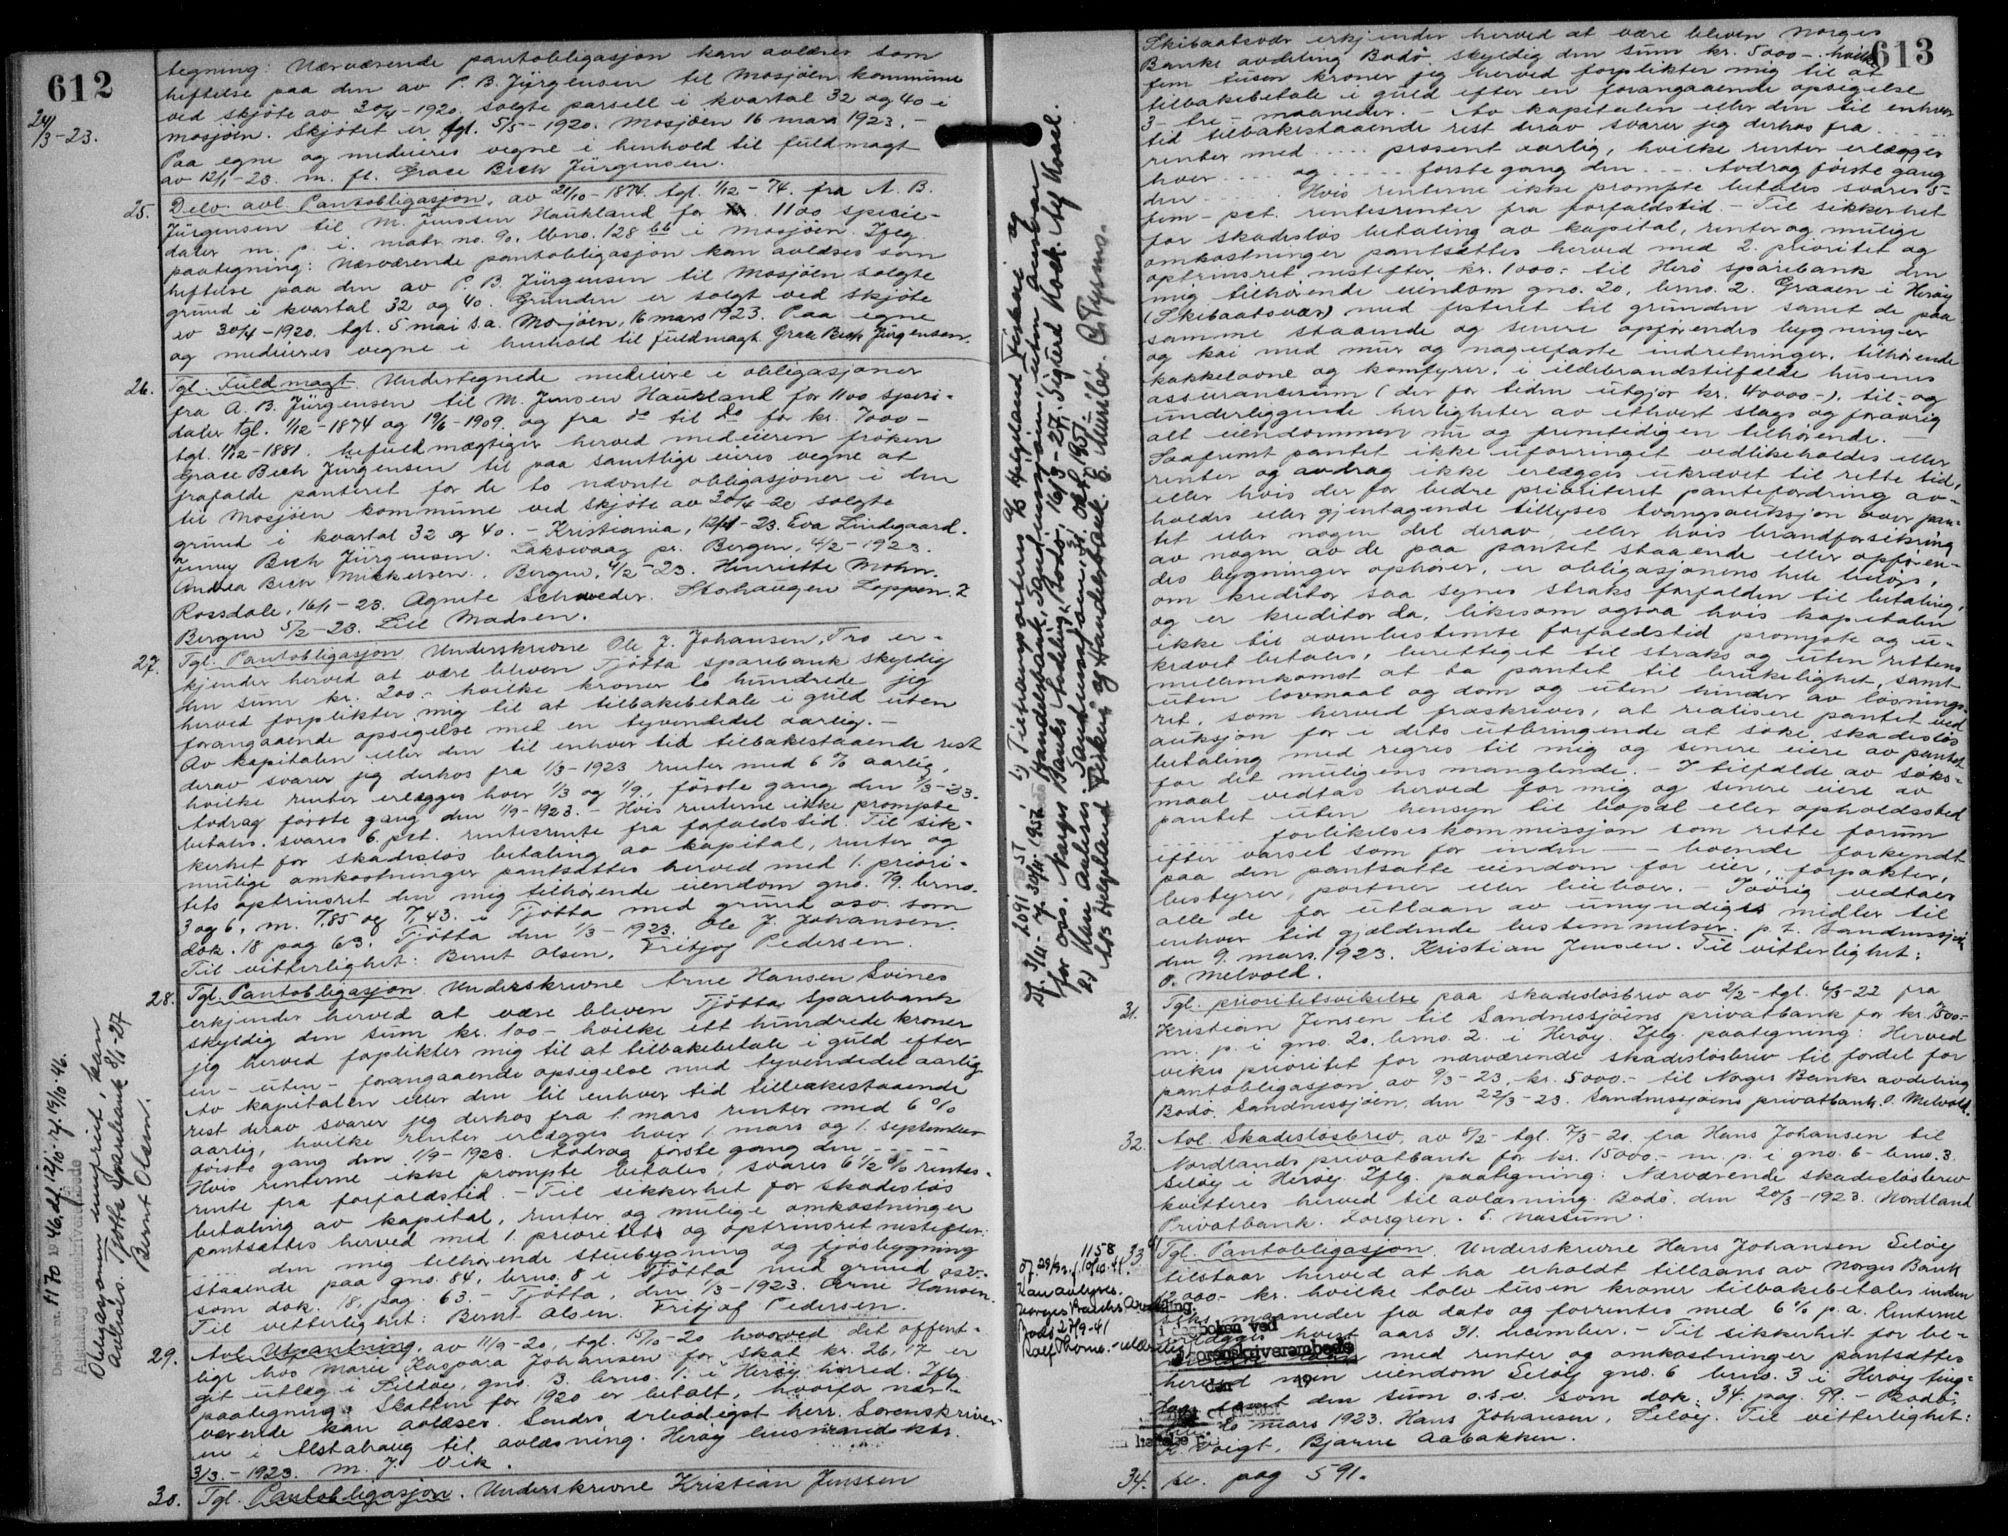 612
24/3-23.
tegning: Nærværende pantobligasjon kan avlæses som
heftelse paa den av P. B. Jürgensen til Mosjöen kommune
ved skjöte av 30/4-1920 solgte parsell i kvartal 32 og 40 i
Mosjöen. Skjötet er tgl. 5/5-1920. Mosjöen 16 mars 1923.-
Paa egne og medeieres vegne i henhold til fuldmagt
av 12/1-23. m. fl. Grace Bech Jürgensen.
25. Delv. avl. Pantobligasjon, av 21/10-1874 tgl. 1/12-74. fra A. B.
Jürgensen til M. Jensen Haukland for 1100 specie-
daler m. p. i. matr. no. 90. lbno. 128 bb i Mosjöen. Iflg.
paategning: Nærværende pantobligasjon kan avlæses som
heftelse paa den av P. B. Jürgensen til Mosjöen solgte
grund i kvartal 32 og 40. Grunden er solgt ved skjöte
av 30/4-1920. tgl. 5 mai s.a. Mosjöen, 16 mars 1923. Paa egne
og medeieres vegne i henhold til fuldmagt Grace Bech Jürgensen.
26. Tgl. Fuldmagt. Undertegnede medeiere i obligasjoner
fra A. B. Jürgensen til M. Jensen Haukland for 1100 speci-
daler tgl. 1/12-1874 og 19/6-1909. og fra do til do for kr. 7000-
tgl. 1/12-1881. befuldmægtiger herved medeieren fröken
Grace Bech Jürgensen til paa samtlige eieres vegne at
frafalde panteret for de to nævnte obligasjoner i den
til Mosjöen kommune ved skjöte av 30/4-20 solgte
grund i kvartal 32 og 40. - Kristiania, 12/1-23. Eva Lindegaard.
Fenny Bech Jürgensen. Laksevaag pr. Bergen, 4/2-1923.
Andrea Bech Mickelsen. Bergen, 4/2-23. Henriette Mohn.
Rossdale, 16/1-23. Agnete Schrøeder. Storhaugen Loppen.
Bergen 5/2-23. Lill Madsen.
27. Tgl. Pantobligasjon. Underskrevne Ole J. Johansen, Tro er-
kjender herved at være bleven Tjötta sparebank skyldig
den sum kr. 200.- hvilke kroner to hundrede jeg
herved forplikter mig til at tilbakebetale i guld uten
forangaaende opsigelse med en tyvendedel aarlig.-
Av kapitalen eller den til enhver tid tilbakestaaende rest
derav svarer jeg derhos fra 1/3-1923 renter med 6% aarlig,
hvilke renter erlægges hver 1/3 og 1/9, første gang den 1/3-23.
Avdrag første gang den 1/9-1923.- Hvis renterne ikke prompte
betales. svares 6 pct. rentesrente fra forfaldstid. Til sik-
kerhet for skadeslös betaling av kapital, renter og
mulige omkostninger pantsættes herved med 1. priori-
tets optrinsret den mig tilhörende eiendom gno. 79. brno.
3 og 6, m. 7,85 og 7,43. i Tjötta med grund osv. som
dok. 18 pag 63. Tjötta den 1/3-1923. Ole J. Johansen.
Til vitterlighet: Bernt Olsen. Fritjof Pedersen.
28. Tgl. Pantobligasjon Underskrevne Arne Hansen Svines
erkjender herved at være bleven Tjötta Sparebank
skyldig den sum kr. 100- hvilke ett hundrede kroner
jeg herved forplikter mig til at tilbakebetale i guld efter
en- uten- forangaaende opsigelse med tyvendedel aarlig
Av kapitalen eller den til enhver tid tilbakestaaende
rest derav svarer jeg derhos fra 1. mars renter med 6%
aarlig, hvilke renter erlægges hver 1. mars og 1. september
første gang den 1/9-1923. Avdrag første gang den ....
Hvis renterne ikke prompte betales, svares 6 1/2 % rentes-
rente fra forfaldstid. - Til sikkerhet for skadeslös
betaling av kapital, renter og mulige omkostninger
pantsættes herved med 1. prioritets og optrinsret nestefter:
..... den mig tilhörende stuebygning og fjösbygning
staaende paa gno. 84, brno. 8 i Tjötta med grund osv.-
som dok. 18. pag. 63.- Tjötta, den 1/3-1923. Arne Hansen.
Til vitterlighet: Bernt Olsen. Fritjof Pedersen.
29. Avl. Utpantning, av 11/9-20, tgl. 15/10-20 hvorved det offent-
lige hos Marie Kaspara Johansen for skat kr. 26,17 er
git utlæg i Sildöe, gno. 3. brno. 1. i Heröy herred. Iflg.
paategning: Skatten for 1920 er betalt, hvorfor nær-
værende kan avlæses. Sendes ærbödigst herr. Sorenskrive-
en i Alstahaug til avlæsning. Heröy lensmandsktr.
3/3.-1923. M. J. Vik.
30. Tgl. Pantobligasjon. Underskrevne Kristian Jenssen
Obligasjonen innfriet, kan
avlæses. Tjötta Sparebank 8/1-27
Bernt Olsen.
Dagbok nr. 1170 1946, df. 12/10, tgl. 19/10-46.
Alstahaug sorenskriverembede
Df. 3/11 2091 51, tgl. 30/11 1951. 1) Tiltransporteres A/S Helgeland Fiskeri og
Handelsbank, Sandnessjöen, uten ansvar
for oss. Norges Banks Avdeling, Bodö, 16/3-27. Sigurd Koch. Alf Kosel.
2) Kan avlæses. Sandnessjöen, 31. okt. 1951.
A/S Helgeland Fiskeri og Handelsbank. E. Murbeö.
613
Skibaatsvær erkjender herved at være bleven Norges
Banks avdeling Bodö skyldig den sum kr. 5000- hvilke
fem tusen kroner jeg herved forplikter mig til at
tilbakebetale i guld efter en forangaaende opsigelse
3- tre- maaneder.- Av kapitalen eller den til enhver
tid tilbakestaaende rest derav svarer jeg derhos fra .....
renter med .... prosent aarlig, hvilke renter erlægges
hver .... og ..... første gang den .... Avdrag første gang
den ..... Hvis renterne ikke prompte betales svares 5-
fem- pct. rentesrenter fra forfaldstid.- Til sikkerhet
for skadeslös betaling av kapital, renter og mulige
omkostninger pantsættes herved med 2. prioritet og
optrinsret nestefter kr. 1000.- til Herö sparebank den
mig tilhörende eiendom gno. 20, brno. 2. Graaen i Heröy
(Skibaatsvær) med festeret til grunden samt de paa
samme staaende og senere opförendes bygninger
og kai med mur og naguefaste indretninger, tilhörende
kakkelovne og komfyrer, i ildebrandstilfælde husenes
assurancesum (der for tiden utgjör kr. 40000-), til- og
underliggende herligheter av ethvert slags og forövrig
alt eiendommen nu og fremtidigen tilhörende.-
Saafremt pantet ikke uforringet vedlikeholdes eller
renter og avdrag ikke erlægges ukrævet til rette tid,
eller hvis der for bedre prioriteret pantefordring av-
holdes eller gjentagende tillyses tvangsauksjon over pan-
tet eller nogen del derav, eller hvis brandforsikring
av nogen av de paa pantet staaende eller opfören-
des bygninger ophörer, er obligasjonens hele belöp,
om kreditor saa synes straks forfalden til betaling,
og er kreditor da, likesom ogsaa hvis kapitalen
ikke til ovenbestemte forfaldstid prompte og u-
krævet betales, berettiget til straks og uten rettens
mellemkomst at ta pantet til brukelighet, samt
uten lovmaal og dom og uten hinder av lösnings-
ret, som herved fraskrives, at realisere pantet ved
auksjon for i dets utbringende at söke skadeslös
betaling med regres til mig og senere eiere av pantet
for det muligens manglende.- I tilfælde av söks-
maal vedtas herved for mig og senere eiere av
pantet uten hensyn til bopæl eller opholdssted
....... forlikelseskommissjon som rette forum
efter varsel som for inden- - boende forkyndt
paa den pantsatte eiendom for eier, forpakter,
bestyrer, portner eller leieboer.- Iövrig vedtaes
alle de for utlaan av umyndiges midler til
enhver tid gjældende bestemmelser. p. t. Sandnessjöen
den 9. mars 1923. Kristian Jensen. Til vitterlighet:
O. Melvold.
31. Tgl. prioritetsvikelse paa skadeslösbrev av 2/2- tgl. 6/3-22 fra
Kristian Jensen til Sandnessjöens privatbank for kr. 7500.-
m. p. i gno. 20. brno 2. i Heröy. Iflg. paategning: Herved
vikes prioritet for nærværende skadeslösbrev til fordel for
pantobligasjon av 9/3-23, kr. 5000.- til Norges Banks avdeling
Bodö, Sandnessjöen, den 22/3-23. Sandnessjöens privatbank. O. Melvold.
32. Avl. Skadeslösbrev, av 8/2- tgl. 7/3-20. fra Hans Johansen til
Nordlands privatbank for kr. 15000.- m. p. i gno. 6- brno. 3.
Selöy i Heröy. Iflg. paategning: Nærværende skadeslösbrev
kvitteres herved til avlæsning. Bodö. den 20/3-1923. Nordland
Privatbank. Forsgren. E. Nassum.
33. Tgl. Pantobligasjon. Underskrevne Hans Johansen Selöy
tilstaar herved at ha erholdt tillaans av Norges Bank
12000.- kr. hvilke tolv tusen kroner tilbakebetales inden
seks maaneder fra dato og forrentes med 6% p. a. Renterne
erlægges hvert aars 31. december.- Til sikkerhet for be-
med renter og omkostninger pantsættes
herved min eiendom Selöy gno. 6 brno. 3 i Heröy ting-
lag samt den sum o.s.v. som dok. 34. pag. 99.- Bodö,
den 20 mars 1923. Hans Johansen, Selöy. Til vitterlighet:
Voigt. Bjarne Aabakken.
34. se. pag 591.
1158
Kan avlyses.
Norges Banks Avdeling.
Bodö 27/9-41
dagboken ved
sorenskriverembede
den 19